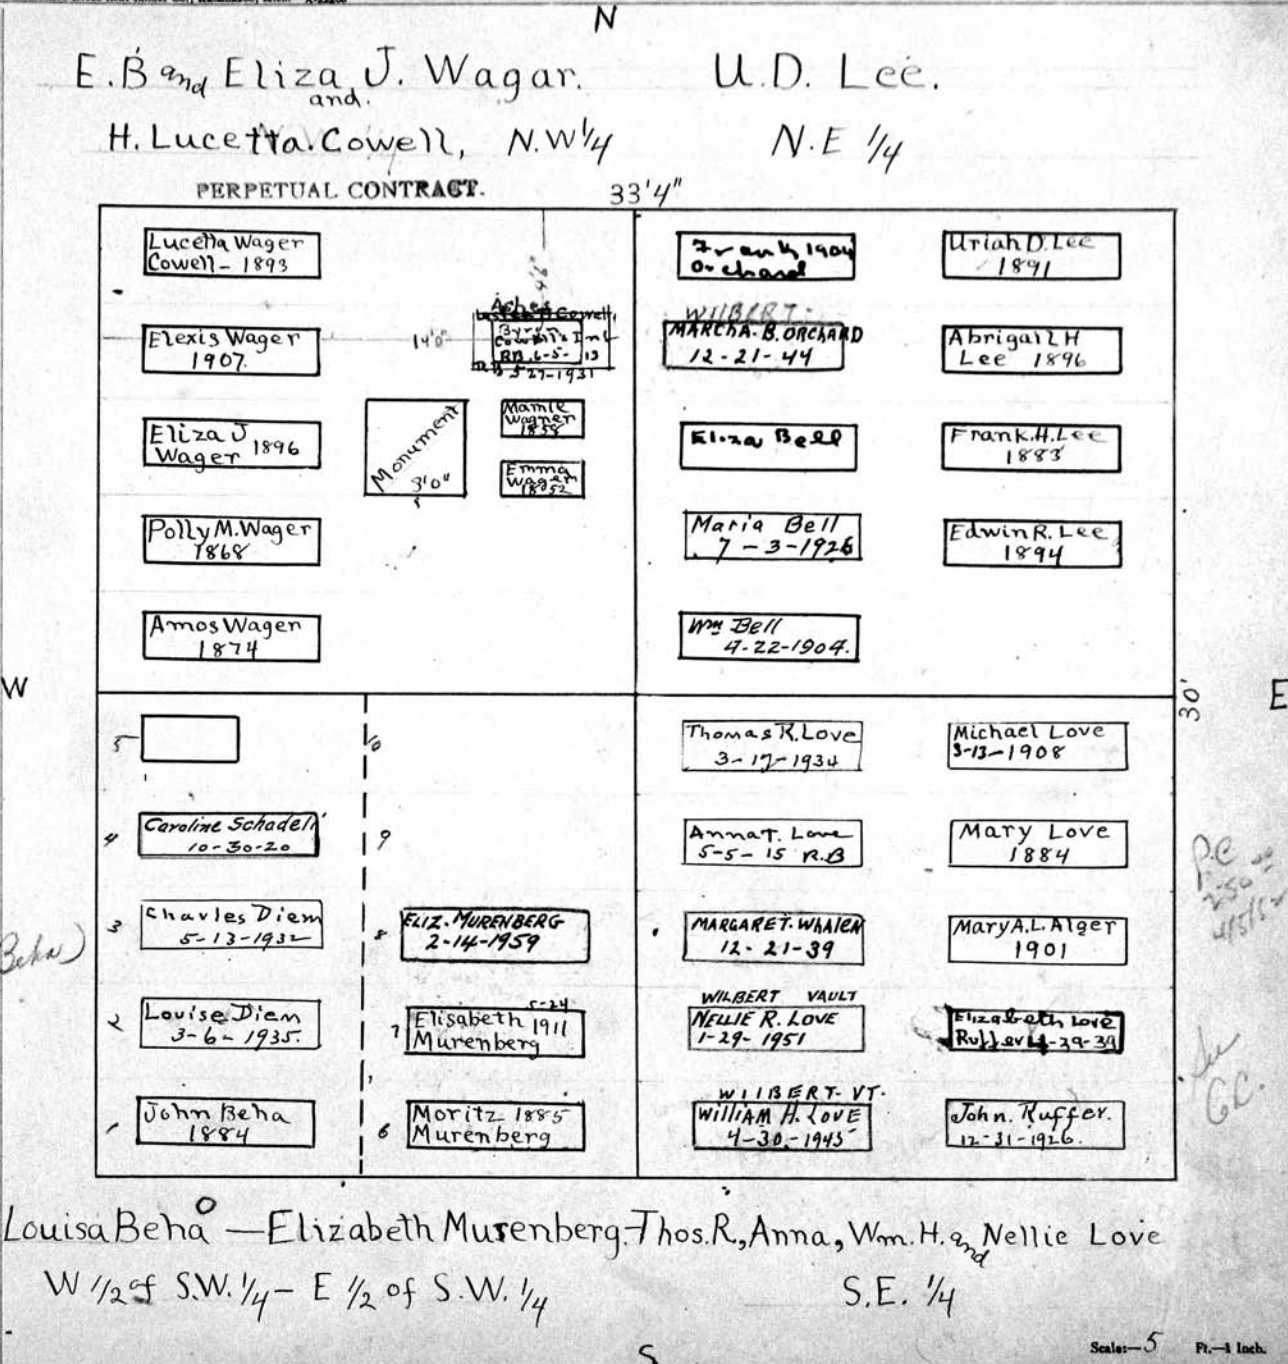 N
E.B and Eliza J. Wagar.
and.
H. Lucetta Cowell, N.W 1/4
U.D. Lee.
N.E 1/4
PERPETUAL CONTRACT.
33'4"
Lucetta Wager
Cowell - 1893
Elexis Wager
1907.
Eliza J
Wager 1896
Polly M. Wager
1868
Amos Wagen
1874
14'0"
Ashes
Cowell,
Byron
Cowell's Inf
RB. 6-5- 13
5 27-1931
Monument
3'0"
Mamie
Wagner
1858
Emma
Wagen
1852
Frank 1904
Orchard
WILBERT.
MARCHA. B. ORCHARD
12-21-44
Eliza Bell
Maria Bell
7-3-1926
Wm Bell
4-22-1904.
Uriah D. Lee
1891
Abrigail H
Lee 1896
Frank. H. Lee
1883
Edwin R. Lee
1894
W
30'
E
5
4
Caroline Schadell
10-30-20
3
Charles Diem
5-13-1932
2
Louise Diem
3-6-1935.
1
John Beha
1884
Beha)
10
9
8
ELIZ. MURENBERG
2-14-1959
7
5-24
Elisabeth 1911
Murenberg
6
Moritz 1885
Murenberg
Thomas R. Love
3-17-1934
Anna T. Love
5-5-15 R.B
MARGARET. WHALEN
12-21-39
WILBERT VAULT
NELLIE R. LOVE
1-29-1951
WILBERT. VT.
WILLIAM H. LOVE
4-30-1945
Michael Love
3-13-1908
Mary Love
1884
Mary A. L. Alger
1901
Elizabeth Love
Ruffer
John. Ruffer.
12-31-1926.
P.C
250
See
G.C.
Louisa Beha — Elizabeth Murenberg. Thos. R., Anna, Wm. H. and Nellie Love
W 1/2 of S.W. 1/4 - E 1/2 of S.W. 1/4
S.E. 1/4
S
Scale:—5 Ft.—1 Inch.